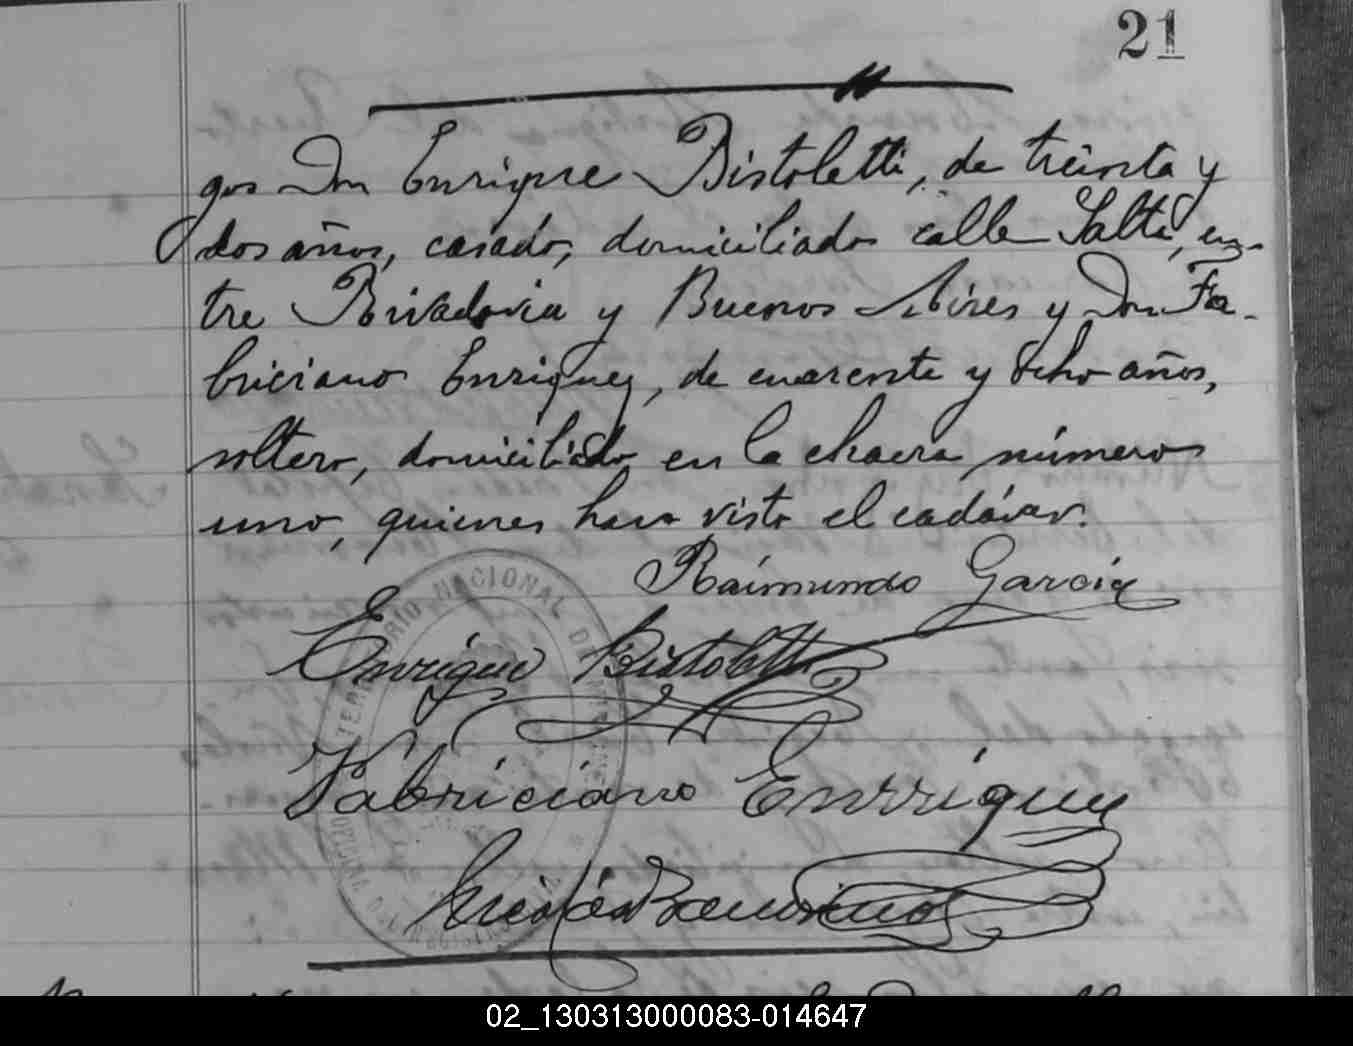 21
gos Don Enrique Bistoletti, de treinta y
dos años, casado, domiciliado calle Salta, en-
tre Rivadavia y Buenos Aires y Don Fa-
briciano Enriquez, de cuarenta y ocho años,
soltero, domiciliado en la chacra número
uno, quienes han visto el cadáver.
Raimundo García
Enrique Bistoletti
Fabriciano Enrriquez
NACIONAL
02_130313000083-014647